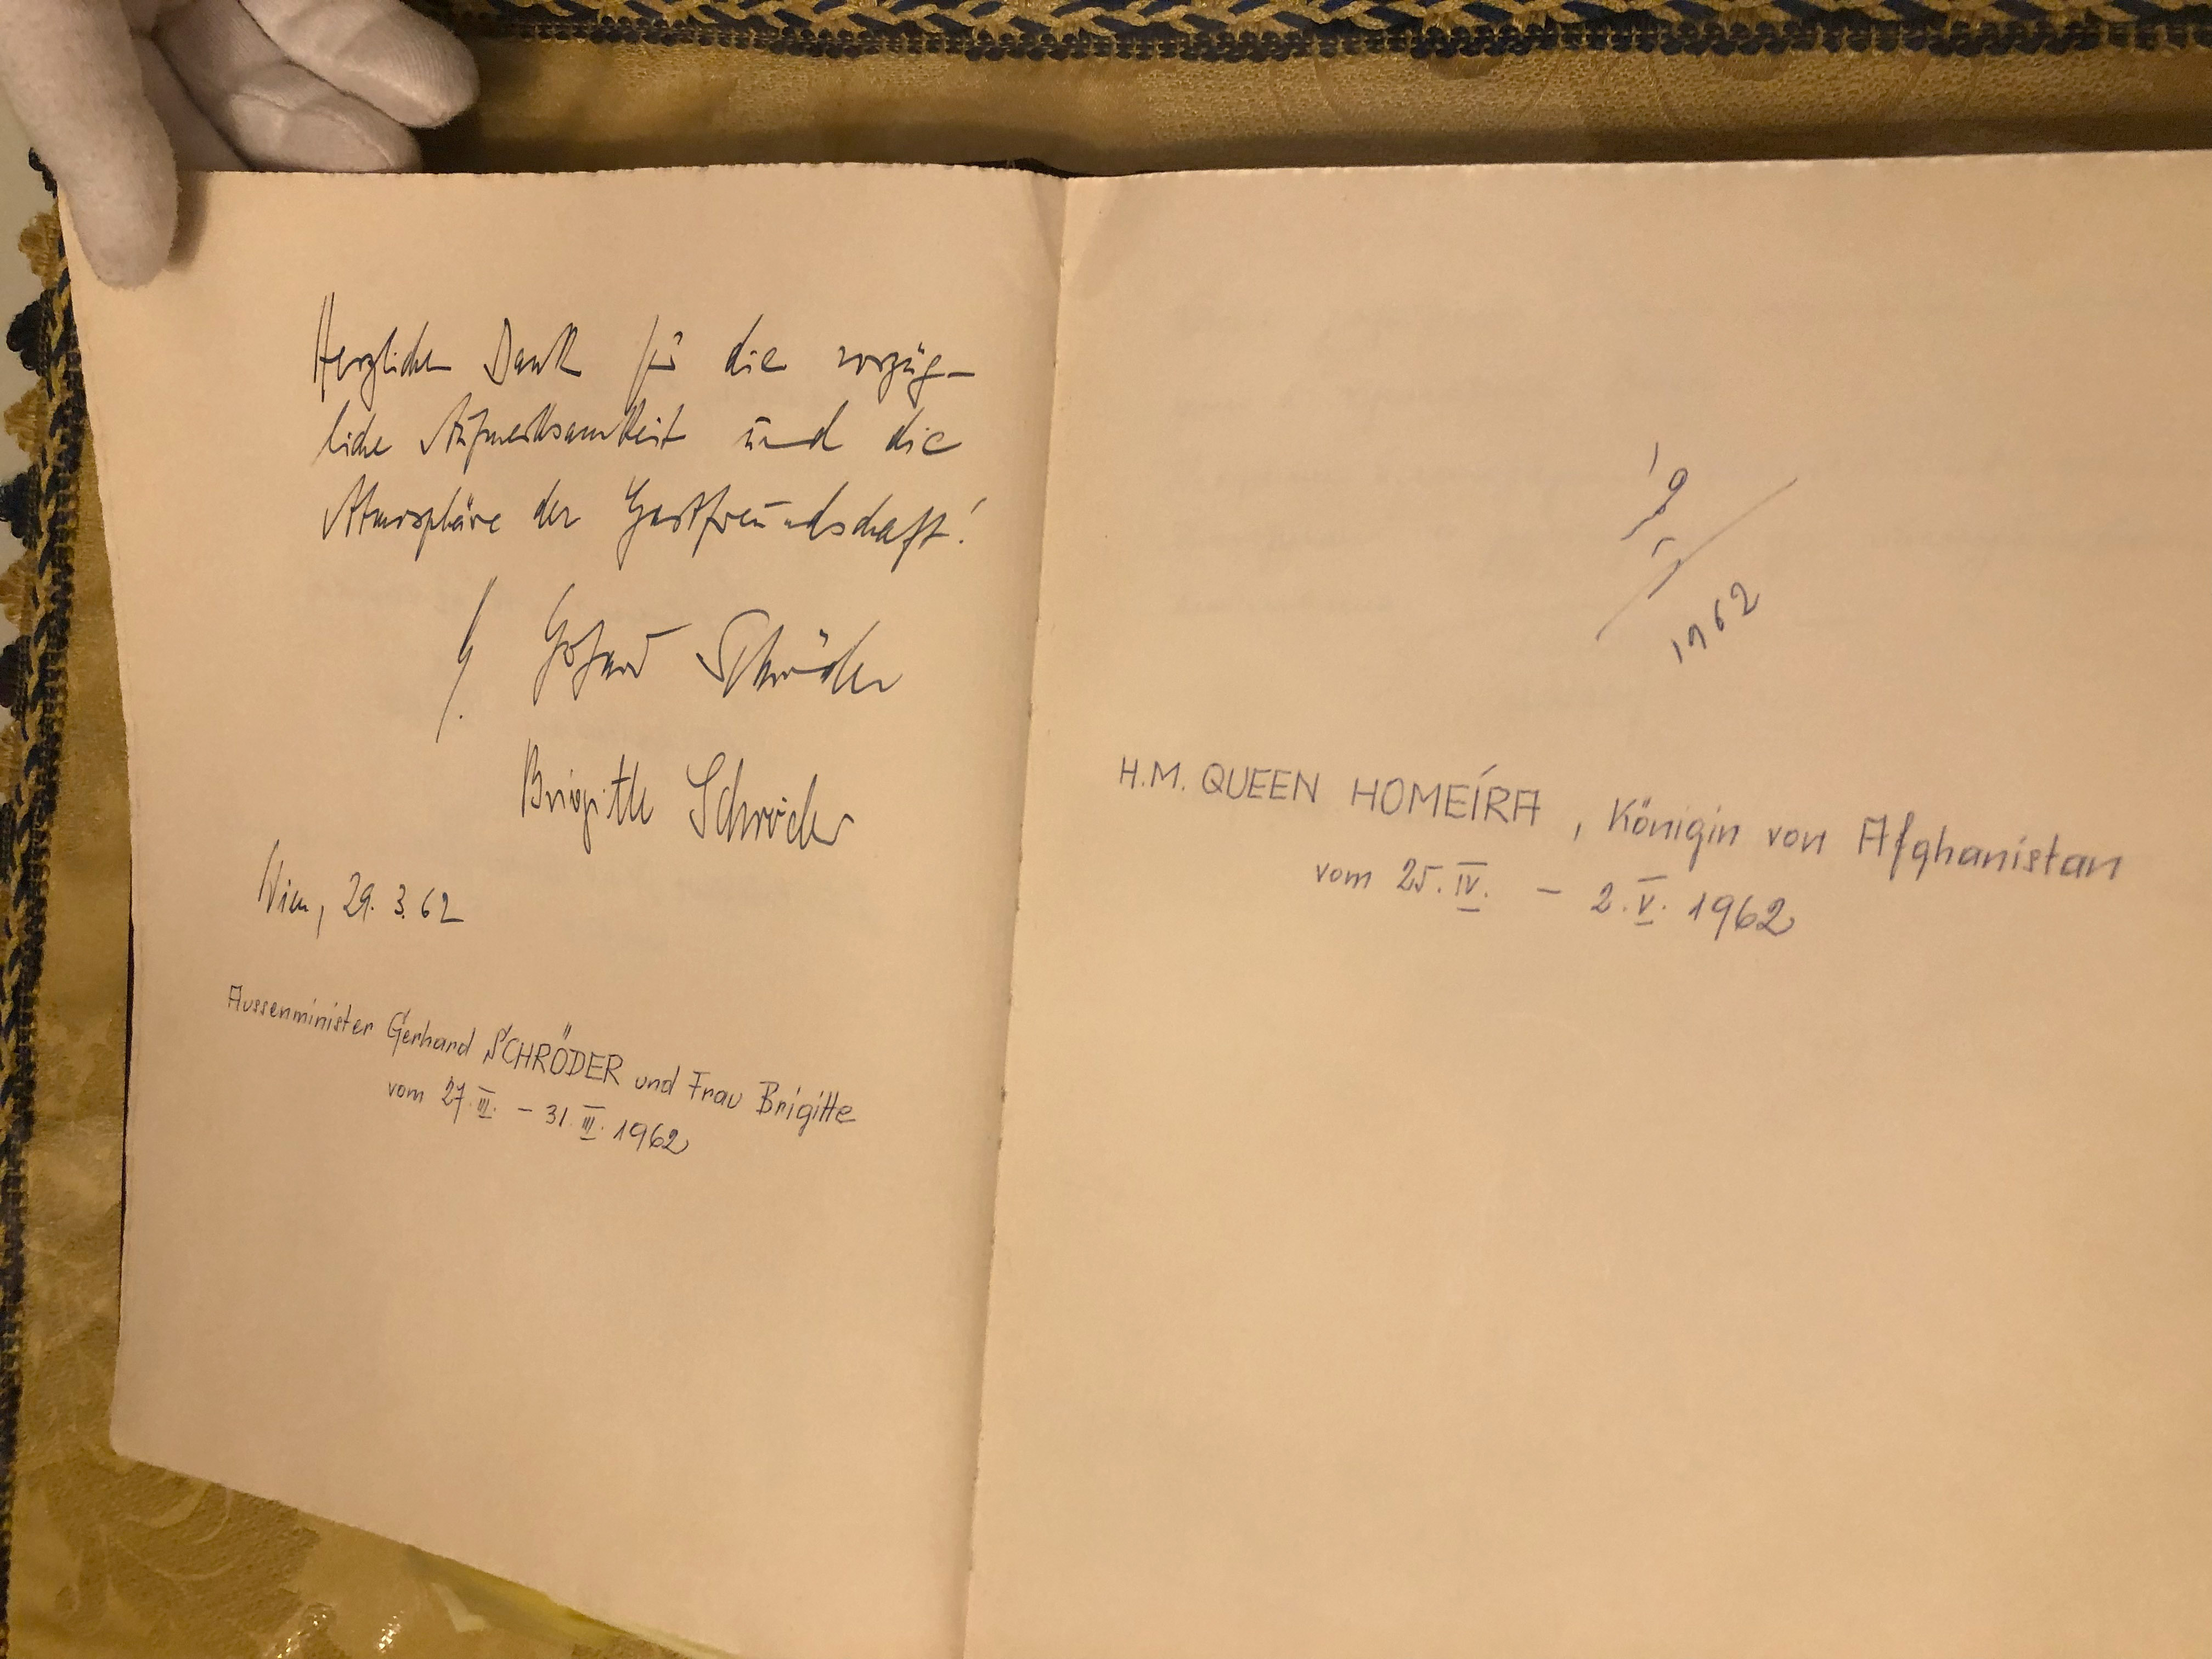 Herzlichen Dank für die vorzüg-
liche Aufmerksamkeit und die
Atmosphäre der Gastfreundschaft!
Gerhard Schröder
Brigitte Schröder
Wien, 29.3.62
Aussenminister Gerhard SCHRÖDER und Frau Brigitte
vom 27.III. – 31.III. 1962
1962
H.M. QUEEN HOMEÍRA, Königin von Afghanistan
vom 25.IV. – 2.V. 1962